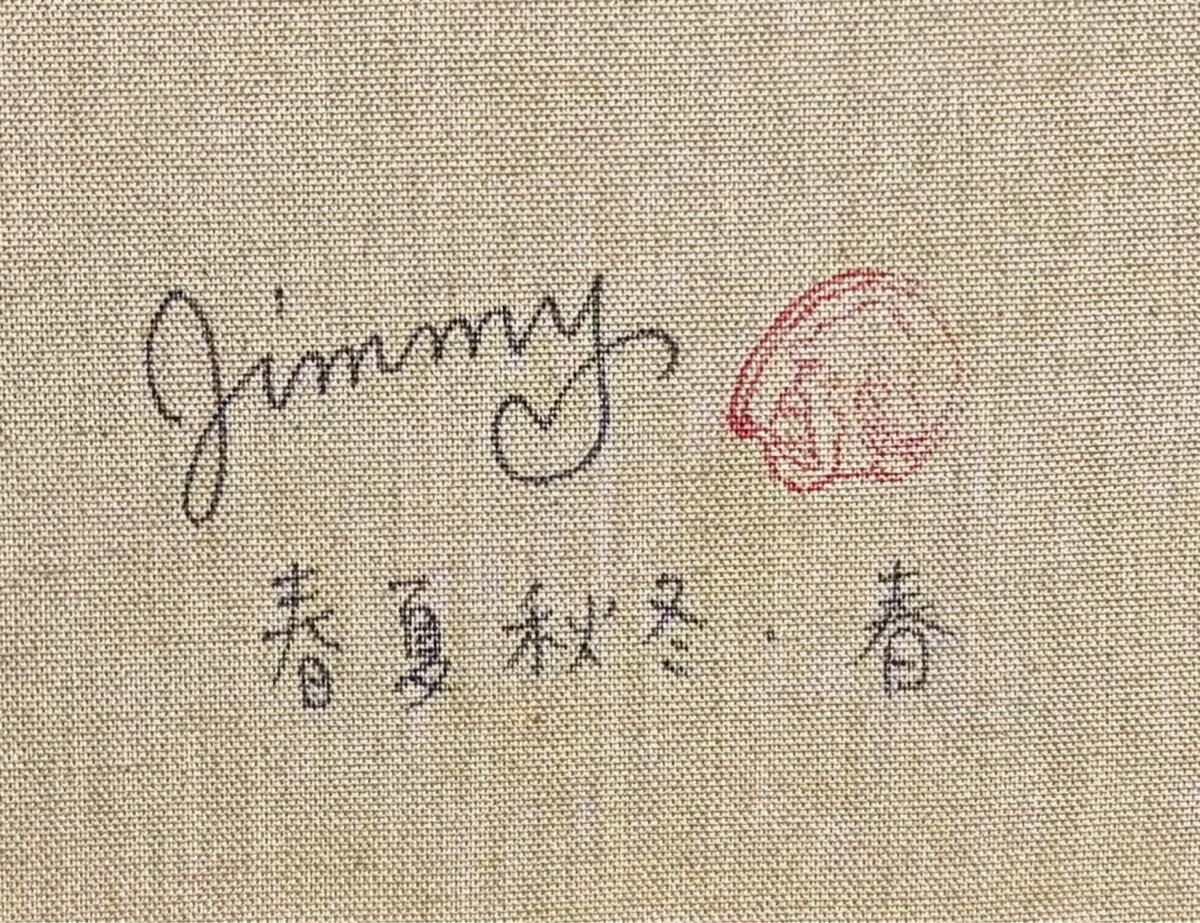 Jimmy
春夏秋冬·春